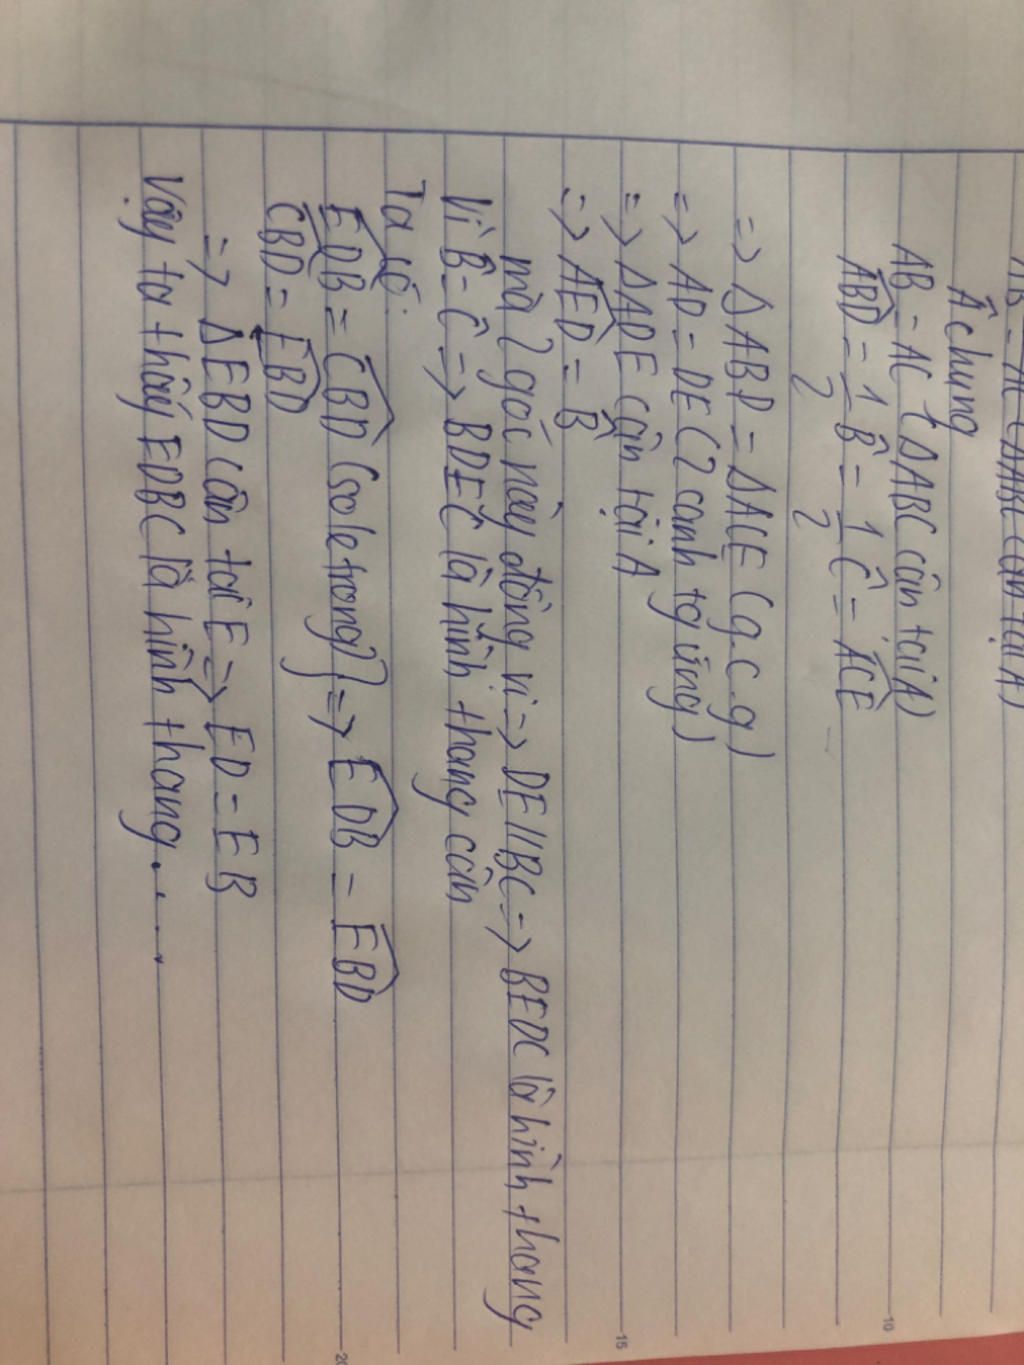 AB = AC (ΔABC cân tại A)
Â chung
AB = AC (ΔABC cân tại A)
ABD = 1/2 B̂ = 1/2 Ĉ = ACE
=> ΔABD = ΔACE (g.c.g)
=> AD = DE (2 cạnh tg ứng)
=> ΔADE cân tại A
=> AED = B̂
mà 2 góc này đồng vị => DE//BC => BEDC là hình thang
Vì B̂ = Ĉ => BDEC là hình thang cân
Ta có:
EDB = CBD (so le trong) } => EDB = EBD
CBD = EBD
=> ΔEBD cân tại E => ED = EB
Vậy ta thấy EDBC là hình thang....
10
15
20